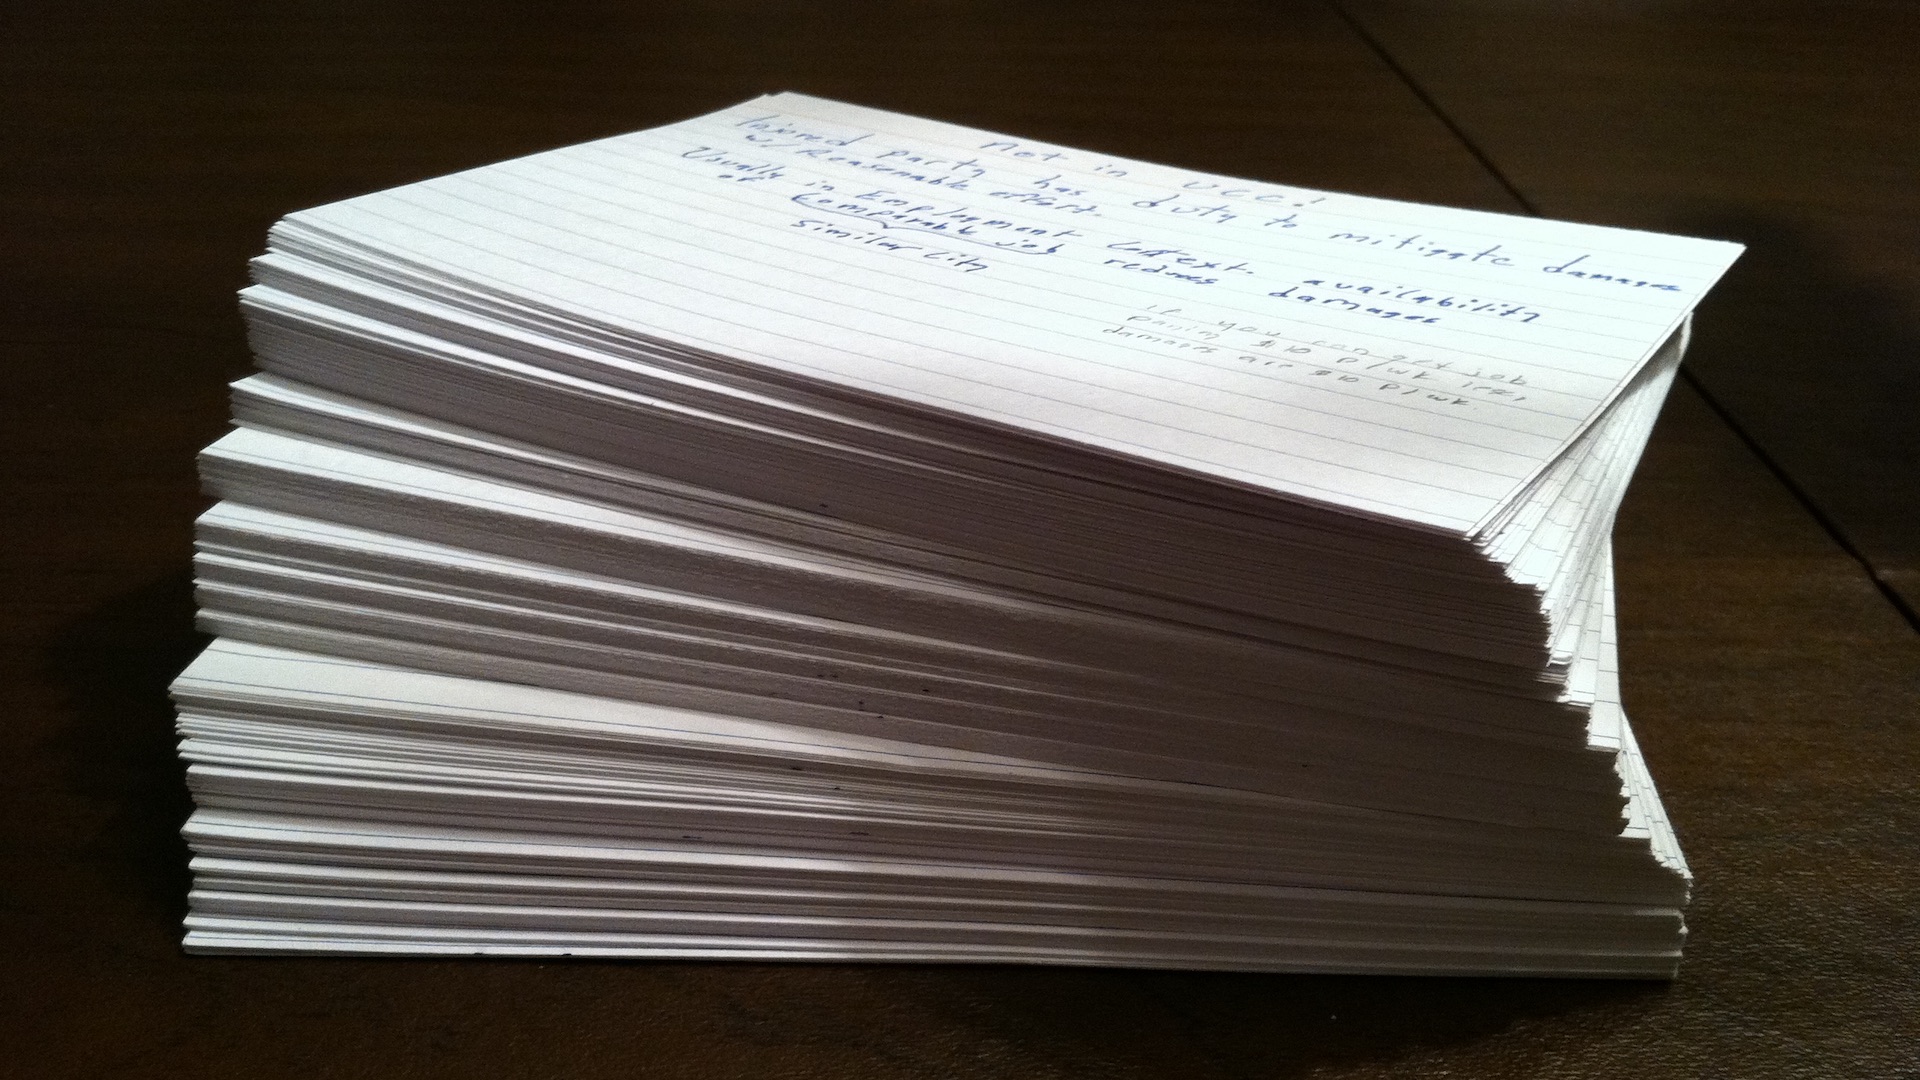 Not in UCC!
Injured party has duty to mitigate damages
w/ Reasonable effort.
Usually in Employment context. availability
of comparable job reduces damages
similar city
if you can get job
paying $10 p/wk less,
damages are $10 p/wk.